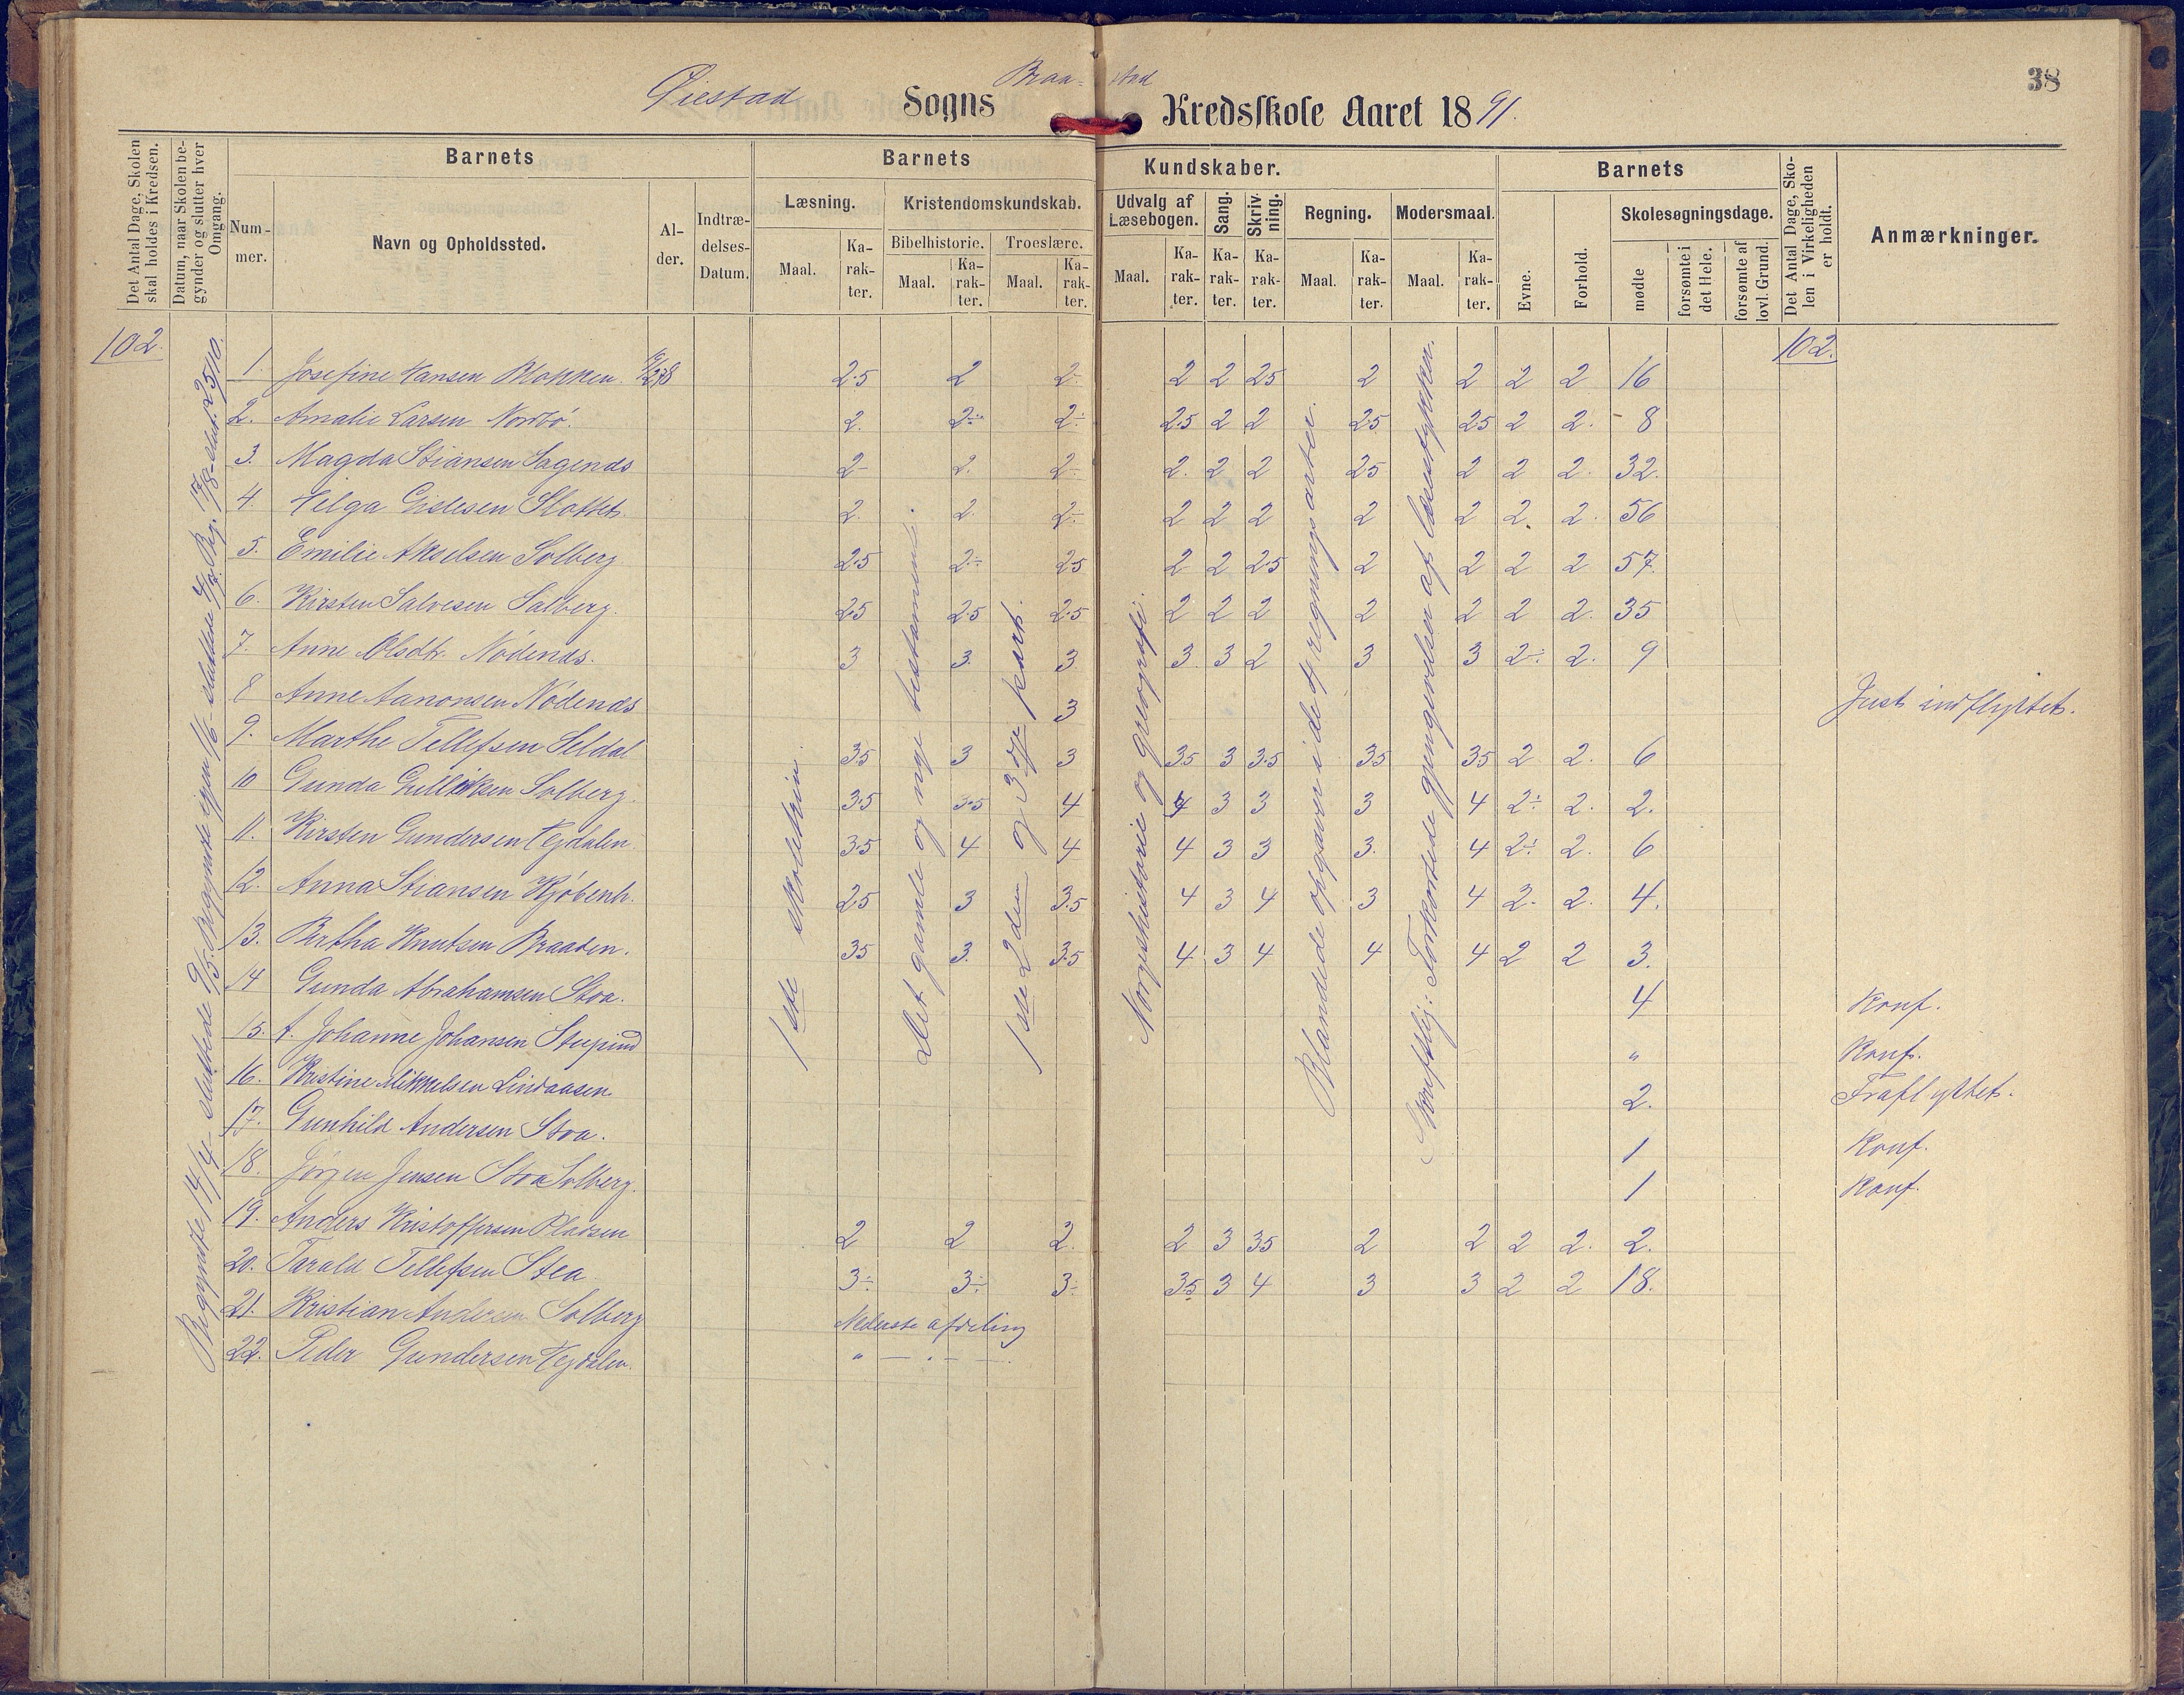 38
Øiestad Sogns Braa-stad Kredsskole Aaret 1891.
Det Antal Dage, Skolen skal holdes i Kredsen.
Datum, naar Skolen begynder og slutter hver Omgang.
Nummer.
Barnets
Navn og Opholdssted.
Alder.
Indtrædelses-Datum.
Barnets Kundskaber.
Læsning. Maal. Karakter.
Kristendomskundskab.
Bibelhistorie. Maal. Karakter.
Troeslære. Maal. Karakter.
Udvalg af Læsebogen. Maal. Karakter.
Sang. Karakter.
Skrivning. Karakter.
Regning. Maal. Karakter.
Modersmaal. Maal. Karakter.
Barnets
Evne.
Forhold.
Skolesøgningsdage.
mødte
forsømte i det Hele.
forsømte af lovl. Grund.
Det Antal Dage, Skolen i Virkeligheden er holdt.
Anmærkninger.
102. 102.
Begyndte 14/4 sluttede 9/5. Begyndte igjen 1/6 - sluttede 4/7. Beg. 17/8 - slut. 25/10.
1ste skoletrin.
Det gamle og nye testamente.
1ste 2den og 3dje part.
Norgeshistorie og geografi.
Blandede opgaver i de 4 regningsarter.
Skriftlig: Forkortede gjengivelser af læsestykker.
1. Josefine Hansen Blokken. 2.5 2 2- 2 2 25 2 2 2 2 16
2. Amalie Larsen Norbø. 2. 2÷ 2÷ 2.5 2 2 25 25 2 2. 8
3. Magda Stiansen Sagends 2- 2. 2- 2. 2 2 25 2 2 2. 32.
4. Helga Gislesen Slottet. 2. 2. 2÷ 2 2 2 2 2 2. 2. 56
5. Emilie Akselsen Solberg. 2.5 2÷ 25 2 2 2.5 2 2 2 2 57.
6. Kirsten Salvesen Solberg. 2.5 2.5 2.5 2 2 2 2 2 2 2. 35
7. Anne Olsdt. Nødends. 3 3. 3. 3. 3 2 3 3 2÷ 2. 9
8 Anne Aanonsen Nødends 3 Just indflyttet.
9. Marthe Tellefsen Seldal 3.5 3 3 3.5 3 3.5 35 35 2 2. 6
10 Gunda Gulliksen Solberg. 3.5 3.5 4 4 3 3 3 4 2÷ 2. 2.
11. Kirsten Gundersen Vejdalen 3.5 4 4 4 3 3 3. 4 2÷ 2. 6
12. Anna Stiansen Kjøbenh. 2.5 3 3.5 4 3 4 3 4 2. 2. 4.
13. Bertha Knutsen Braaten. 35 3. 3.5 4 3 4 4 4 2 2 3.
14 Gunda Abrahamsen Stoa. 4 Konf.
15. A. Johanne Johansen Stupind " Konf.
16. Kristine Mikkelsen Lindaasen 2. Fraflyttet.
17. Gunhild Andersen Stoa. 1 Konf.
18. Jørgen Jensen Stoa Solberg. 1 Konf.
19. Anders Kristoffersen Pladsen 2 2 2. 2 3 35 2 2 2 2. 2.
20. Tarald Tellefsen Stea 3÷ 3÷ 3÷ 3.5 3 4 3 3 2 2 18.
21. Kristian Andersen Solberg Nederste afdeling
22. Peder Gundersen Vejdalen. " — . — .